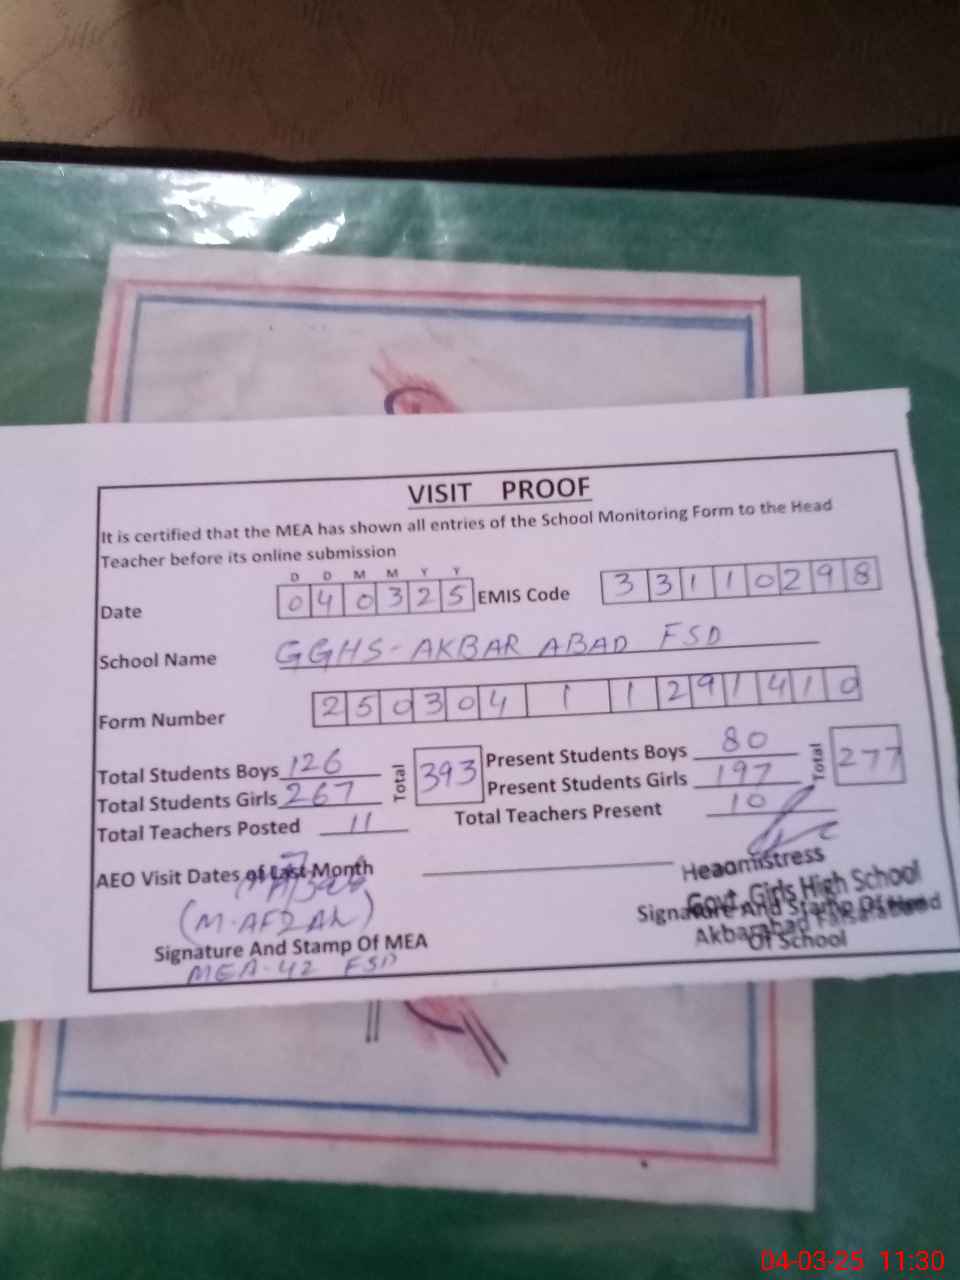 VISIT PROOF
It is certified that the MEA has shown all entries of the School Monitoring Form to the Head
Teacher before its online submission
D D M M Y Y
Date 0 4 0 3 2 5 EMIS Code 3 3 1 1 0 2 9 8
School Name GGHS-AKBAR ABAD FSD
Form Number 2 5 0 3 0 4 1 1 2 9 1 4 1 0
Total Students Boys 126 Total 393 Present Students Boys 80 Total 277
Total Students Girls 267 Present Students Girls 197
Total Teachers Posted 11 Total Teachers Present 10
AEO Visit Dates of Last Month
Headmistress
Govt. Girls High School
(M.AFZAL) Signature And Stamp Of Head
Akbarabad
Signature And Stamp Of MEA Of School
MEA-42 FSD
04-03-25 11:30